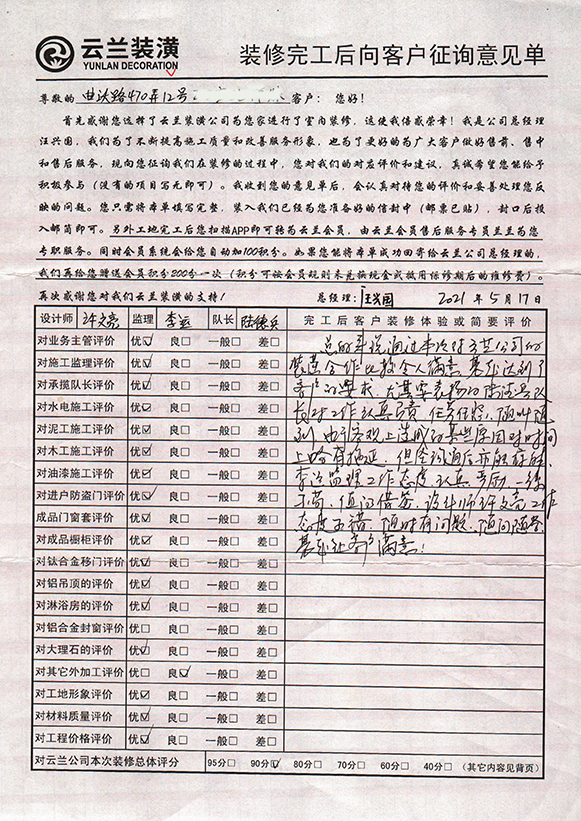 云兰装潢
YUNLAN DECORATION
装修完工后向客户征询意见单
尊敬的 曲沃路470弄12号 客户：您好！
首先感谢您选择了云兰装潢公司为您家进行了室内装修，这使我倍感荣幸！我是公司总经理
汪兴国，我们为了不断提高施工质量和改善服务形象，也为了更好的为广大客户做好售前、售中
和售后服务，现向您征询我们在装修的过程中，您对我们的对应评价和建议，真诚希望您能给予
积极参与（没有的项目写无即可）。我收到您的意见单后，会认真对待您的评价和妥善处理您反
映的问题。您只需将本单填写完整，装入我们已经为您准备好的信封中（邮票已贴），封口后投
入邮筒即可。另外工地完工后您扫描APP即可转为云兰会员，由云兰会员售后服务专员兰兰为您
专职服务。同时会员系统会给您自动加100积分。如果您能将本单成功回寄给云兰公司总经理的，
我们再给您赠送会员积分200分一次（积分可按会员规则本兑换现金或抵用保修期后的维修费）。
再次感谢您对我们云兰装潢的支持！ 总经理：汪兴国 2021年5月17日
设计师 许文亮 监理 李运 队长 陆德兵 完工后客户装修体验或简要评价
对业务主管评价 优☑ 良□ 一般□ 差□
对施工监理评价 优☑ 良□ 一般□ 差□
对承揽队长评价 优☑ 良□ 一般□ 差□
对水电施工评价 优☑ 良□ 一般□ 差□
对泥工施工评价 优☑ 良□ 一般□ 差□
对木工施工评价 优☑ 良□ 一般□ 差□
对油漆施工评价 优☑ 良□ 一般□ 差□
对进户防盗门评价 优☑ 良□ 一般□ 差□
成品门窗套评价 优☑ 良□ 一般□ 差□
对成品橱柜评价 优☑ 良□ 一般□ 差□
对钛合金移门评价 优☑ 良□ 一般□ 差□
对铝吊顶的评价 优☑ 良□ 一般□ 差□
对淋浴房的评价 优☑ 良□ 一般□ 差□
对铝合金封窗评价 优□ 良□ 一般□ 差□
对大理石的评价 优☑ 良□ 一般□ 差□
对其它外加工评价 优□ 良☑ 一般□ 差□
对工地形象评价 优☑ 良□ 一般□ 差□
对材料质量评价 优☑ 良□ 一般□ 差□
对工程价格评价 优☑ 良□ 一般□ 差□
总的来说通过本次对方某公司的
装潢合作比较令人满意，基本达到了
客户的要求，尤其要表扬的
工作认真负责，任劳任怨，随叫随
到，由于客观上造成的某些原因对时间
上略有拖延，但
李运监理工作态度认真
值得借鉴，设计师许文亮工作
态度不错，随时有问题，随问随答
基本让客户满意！
对云兰公司本次装修总体评分 95分□ 90分☑ 80分□ 70分□ 60分□ 40分□ （其它内容见背页）